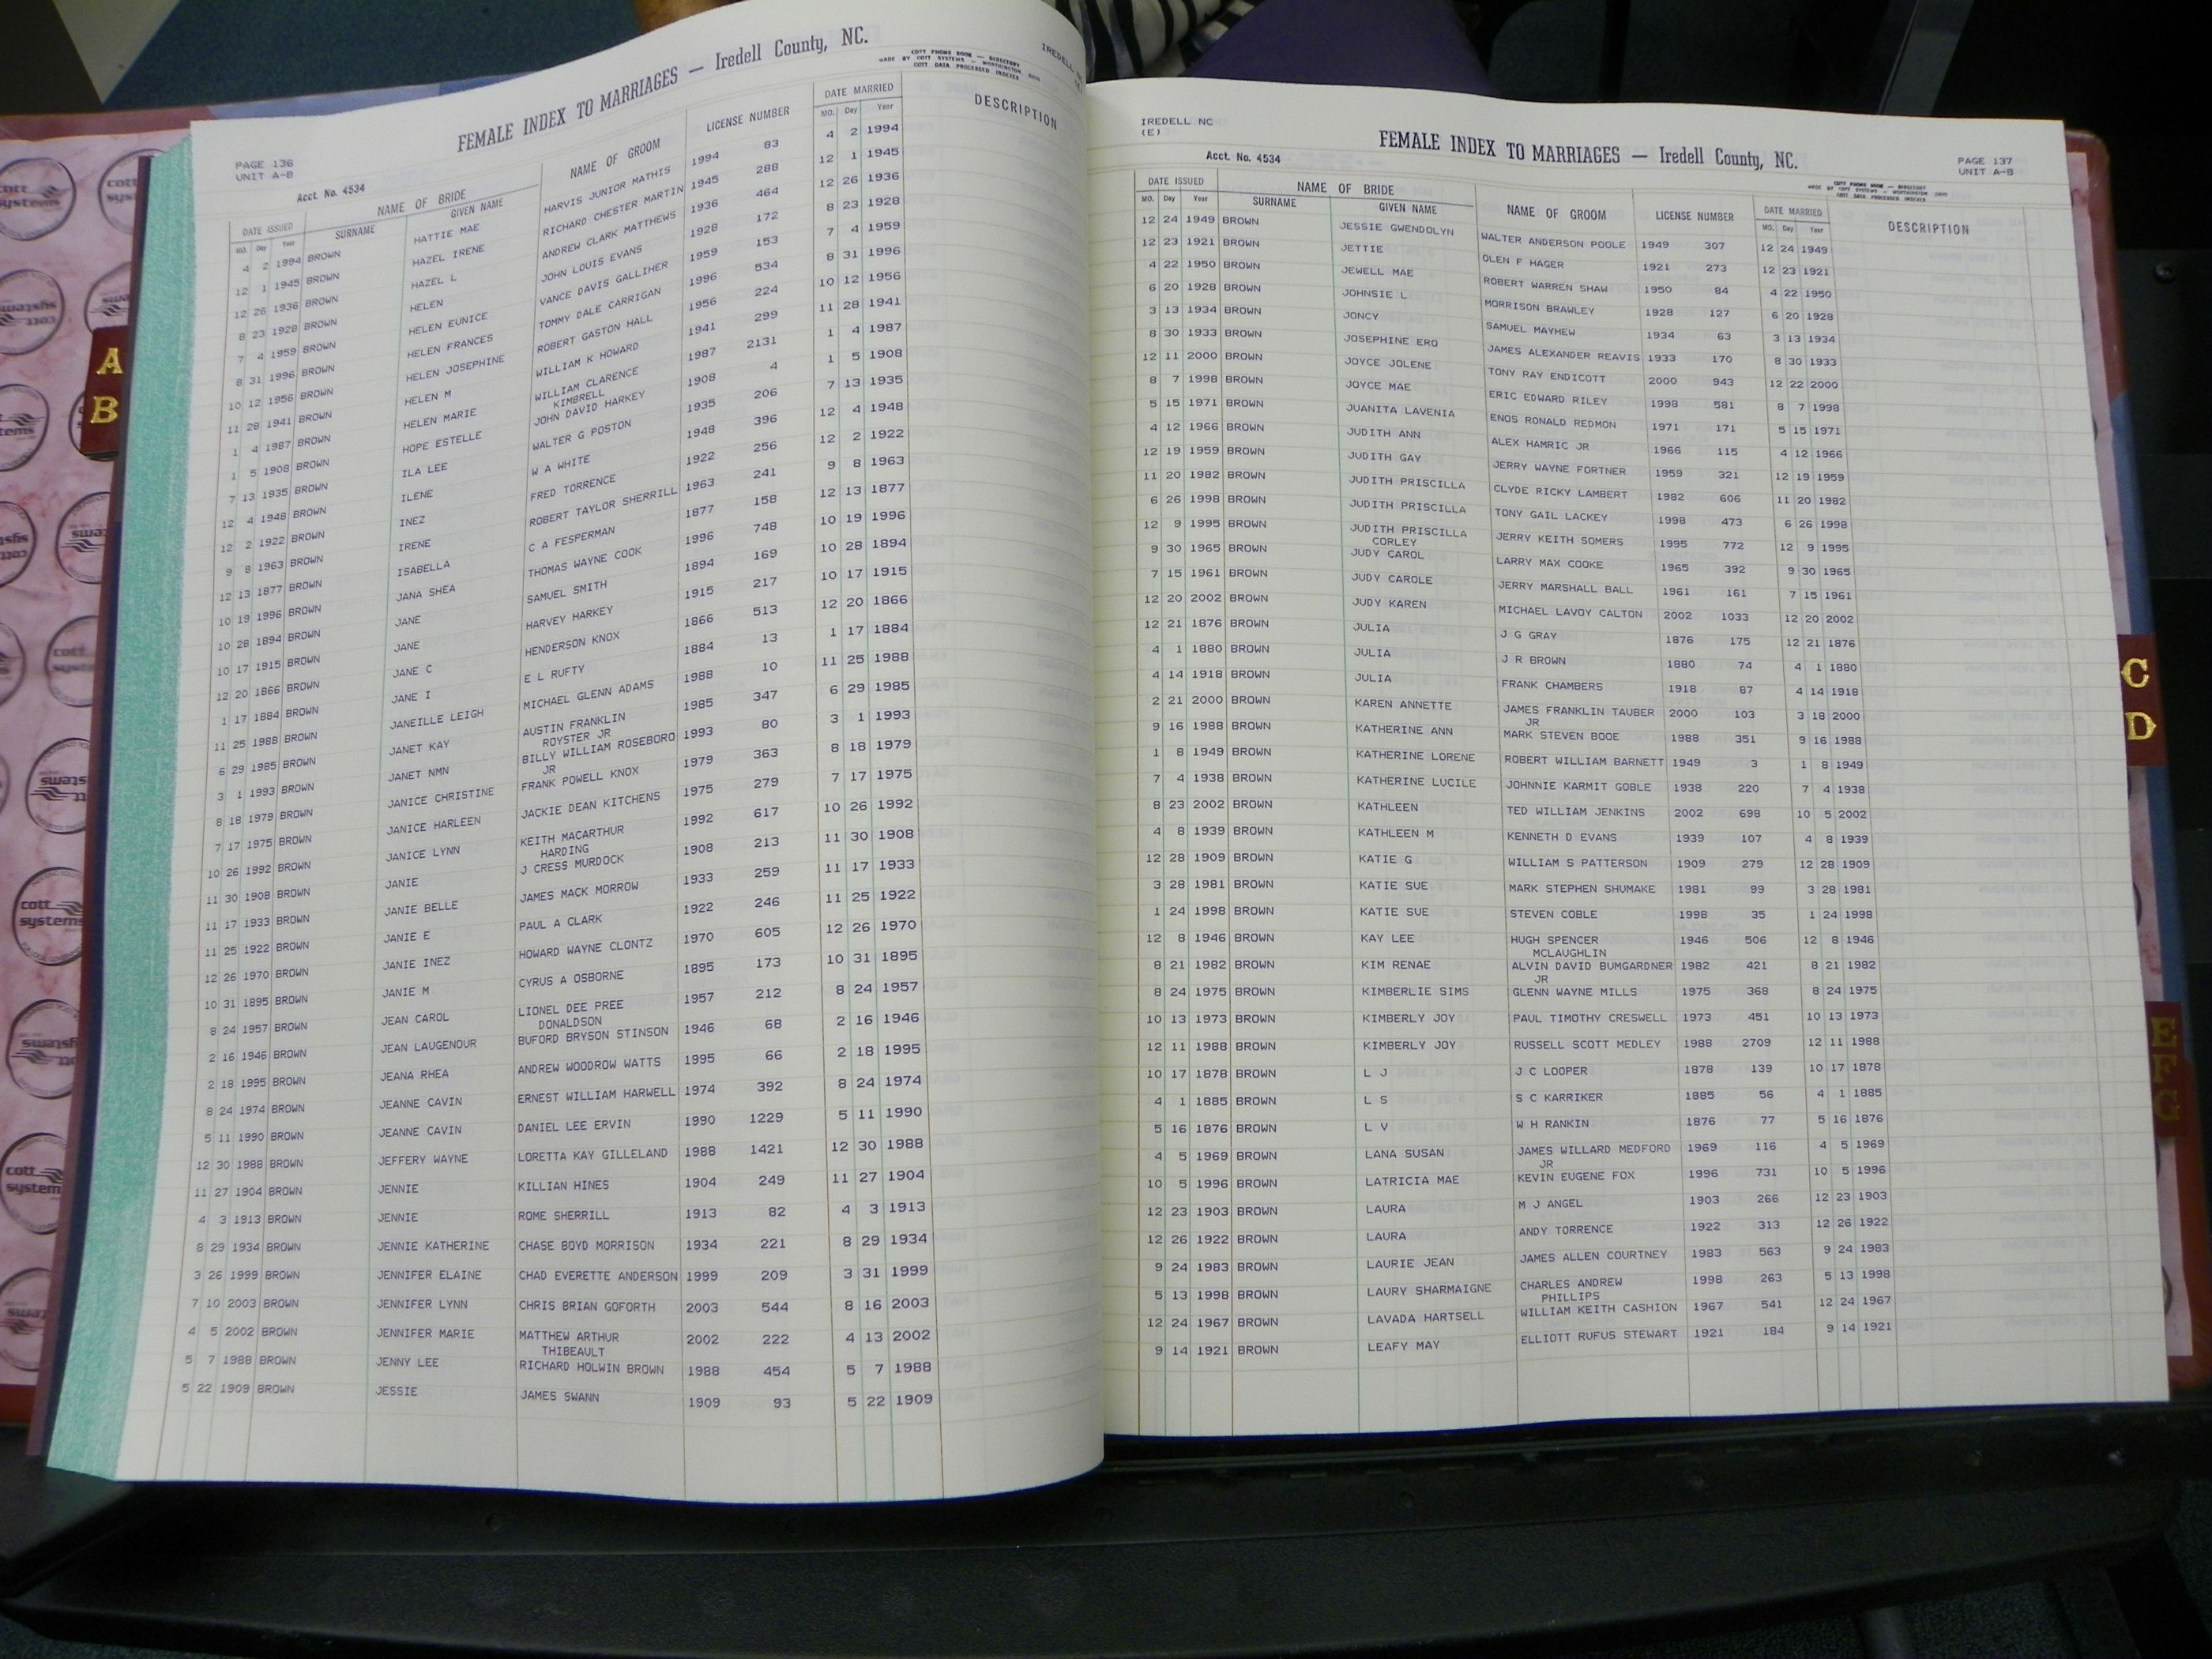 FEMALE INDEX TO MARRIAGES — Iredell County, NC.
COTT PHONE BOOK — DIRECTORY
MADE BY COTT SYSTEMS — WORTHINGTON OHIO
COTT DATA PROCESSED INDEXES
PAGE 136
UNIT A-B
Acct. No. 4534
DATE ISSUED NAME OF BRIDE NAME OF GROOM LICENSE NUMBER DATE MARRIED DESCRIPTION
MO. Day Year SURNAME GIVEN NAME MO. Day Year
4 2 1994 BROWN HATTIE MAE HARVIS JUNIOR MATHIS 1994 83 4 2 1994
12 1 1945 BROWN HAZEL IRENE RICHARD CHESTER MARTIN 1945 288 12 1 1945
12 26 1936 BROWN HAZEL L ANDREW CLARK MATTHEWS 1936 464 12 26 1936
8 23 1928 BROWN HELEN JOHN LOUIS EVANS 1928 172 8 23 1928
7 4 1959 BROWN HELEN EUNICE VANCE DAVIS GALLIHER 1959 153 7 4 1959
8 31 1996 BROWN HELEN FRANCES TOMMY DALE CARRIGAN 1996 534 8 31 1996
10 12 1956 BROWN HELEN JOSEPHINE ROBERT GASTON HALL 1956 224 10 12 1956
11 28 1941 BROWN HELEN M WILLIAM K HOWARD 1941 299 11 28 1941
1 4 1987 BROWN HELEN MARIE WILLIAM CLARENCE 1987 2131 1 4 1987
KIMBRELL
1 5 1908 BROWN HOPE ESTELLE JOHN DAVID HARKEY 1908 4 1 5 1908
7 13 1935 BROWN ILA LEE WALTER G POSTON 1935 206 7 13 1935
12 4 1948 BROWN ILENE W A WHITE 1948 396 12 4 1948
12 2 1922 BROWN INEZ FRED TORRENCE 1922 256 12 2 1922
9 8 1963 BROWN IRENE ROBERT TAYLOR SHERRILL 1963 241 9 8 1963
12 13 1877 BROWN ISABELLA C A FESPERMAN 1877 158 12 13 1877
10 19 1996 BROWN JANA SHEA THOMAS WAYNE COOK 1996 748 10 19 1996
10 28 1894 BROWN JANE SAMUEL SMITH 1894 169 10 28 1894
10 17 1915 BROWN JANE HARVEY HARKEY 1915 217 10 17 1915
12 20 1866 BROWN JANE C HENDERSON KNOX 1866 513 12 20 1866
1 17 1884 BROWN JANE I E L RUFTY 1884 13 1 17 1884
11 25 1988 BROWN JANEILLE LEIGH MICHAEL GLENN ADAMS 1988 10 11 25 1988
6 29 1985 BROWN JANET KAY AUSTIN FRANKLIN 1985 347 6 29 1985
ROYSTER JR
3 1 1993 BROWN JANET NMN BILLY WILLIAM ROSEBORO 1993 80 3 1 1993
JR
8 18 1979 BROWN JANICE CHRISTINE FRANK POWELL KNOX 1979 363 8 18 1979
7 17 1975 BROWN JANICE HARLEEN JACKIE DEAN KITCHENS 1975 279 7 17 1975
10 26 1992 BROWN JANICE LYNN KEITH MACARTHUR 1992 617 10 26 1992
HARDING
11 30 1908 BROWN JANIE J CRESS MURDOCK 1908 213 11 30 1908
11 17 1933 BROWN JANIE BELLE JAMES MACK MORROW 1933 259 11 17 1933
11 25 1922 BROWN JANIE E PAUL A CLARK 1922 246 11 25 1922
12 26 1970 BROWN JANIE INEZ HOWARD WAYNE CLONTZ 1970 605 12 26 1970
10 31 1895 BROWN JANIE M CYRUS A OSBORNE 1895 173 10 31 1895
8 24 1957 BROWN JEAN CAROL LIONEL DEE PREE 1957 212 8 24 1957
DONALDSON
2 16 1946 BROWN JEAN LAUGENOUR BUFORD BRYSON STINSON 1946 68 2 16 1946
2 18 1995 BROWN JEANA RHEA ANDREW WOODROW WATTS 1995 66 2 18 1995
8 24 1974 BROWN JEANNE CAVIN ERNEST WILLIAM HARWELL 1974 392 8 24 1974
5 11 1990 BROWN JEANNE CAVIN DANIEL LEE ERVIN 1990 1229 5 11 1990
12 30 1988 BROWN JEFFERY WAYNE LORETTA KAY GILLELAND 1988 1421 12 30 1988
11 27 1904 BROWN JENNIE KILLIAN HINES 1904 249 11 27 1904
4 3 1913 BROWN JENNIE ROME SHERRILL 1913 82 4 3 1913
8 29 1934 BROWN JENNIE KATHERINE CHASE BOYD MORRISON 1934 221 8 29 1934
3 26 1999 BROWN JENNIFER ELAINE CHAD EVERETTE ANDERSON 1999 209 3 31 1999
7 10 2003 BROWN JENNIFER LYNN CHRIS BRIAN GOFORTH 2003 544 8 16 2003
4 5 2002 BROWN JENNIFER MARIE MATTHEW ARTHUR 2002 222 4 13 2002
THIBEAULT
5 7 1988 BROWN JENNY LEE RICHARD HOLWIN BROWN 1988 454 5 7 1988
5 22 1909 BROWN JESSIE JAMES SWANN 1909 93 5 22 1909
IREDELL NC
(E)
FEMALE INDEX TO MARRIAGES — Iredell County, NC.
Acct. No. 4534
PAGE 137
UNIT A-B
COTT PHONE BOOK — DIRECTORY
MADE BY COTT SYSTEMS — WORTHINGTON OHIO
COTT DATA PROCESSED INDEXES
DATE ISSUED NAME OF BRIDE NAME OF GROOM LICENSE NUMBER DATE MARRIED DESCRIPTION
MO. Day Year SURNAME GIVEN NAME Mo. Day Year
12 24 1949 BROWN JESSIE GWENDOLYN WALTER ANDERSON POOLE 1949 307 12 24 1949
12 23 1921 BROWN JETTIE OLEN F HAGER 1921 273 12 23 1921
4 22 1950 BROWN JEWELL MAE ROBERT WARREN SHAW 1950 84 4 22 1950
6 20 1928 BROWN JOHNSIE L MORRISON BRAWLEY 1928 127 6 20 1928
3 13 1934 BROWN JONCY SAMUEL MAYHEW 1934 63 3 13 1934
8 30 1933 BROWN JOSEPHINE ERO JAMES ALEXANDER REAVIS 1933 170 8 30 1933
12 11 2000 BROWN JOYCE JOLENE TONY RAY ENDICOTT 2000 943 12 22 2000
8 7 1998 BROWN JOYCE MAE ERIC EDWARD RILEY 1998 581 8 7 1998
5 15 1971 BROWN JUANITA LAVENIA ENOS RONALD REDMON 1971 171 5 15 1971
4 12 1966 BROWN JUDITH ANN ALEX HAMRIC JR 1966 115 4 12 1966
12 19 1959 BROWN JUDITH GAY JERRY WAYNE FORTNER 1959 321 12 19 1959
11 20 1982 BROWN JUDITH PRISCILLA CLYDE RICKY LAMBERT 1982 606 11 20 1982
6 26 1998 BROWN JUDITH PRISCILLA TONY GAIL LACKEY 1998 473 6 26 1998
12 9 1995 BROWN JUDITH PRISCILLA JERRY KEITH SOMERS 1995 772 12 9 1995
CORLEY
9 30 1965 BROWN JUDY CAROL LARRY MAX COOKE 1965 392 9 30 1965
7 15 1961 BROWN JUDY CAROLE JERRY MARSHALL BALL 1961 161 7 15 1961
12 20 2002 BROWN JUDY KAREN MICHAEL LAVOY CALTON 2002 1033 12 20 2002
12 21 1876 BROWN JULIA J G GRAY 1876 175 12 21 1876
4 1 1880 BROWN JULIA J R BROWN 1880 74 4 1 1880
4 14 1918 BROWN JULIA FRANK CHAMBERS 1918 87 4 14 1918
2 21 2000 BROWN KAREN ANNETTE JAMES FRANKLIN TAUBER 2000 103 3 18 2000
JR
9 16 1988 BROWN KATHERINE ANN MARK STEVEN BOOE 1988 351 9 16 1988
1 8 1949 BROWN KATHERINE LORENE ROBERT WILLIAM BARNETT 1949 3 1 8 1949
7 4 1938 BROWN KATHERINE LUCILE JOHNNIE KARMIT GOBLE 1938 220 7 4 1938
8 23 2002 BROWN KATHLEEN TED WILLIAM JENKINS 2002 698 10 5 2002
4 8 1939 BROWN KATHLEEN M KENNETH D EVANS 1939 107 4 8 1939
12 28 1909 BROWN KATIE G WILLIAM S PATTERSON 1909 279 12 28 1909
3 28 1981 BROWN KATIE SUE MARK STEPHEN SHUMAKE 1981 99 3 28 1981
1 24 1998 BROWN KATIE SUE STEVEN COBLE 1998 35 1 24 1998
12 8 1946 BROWN KAY LEE HUGH SPENCER 1946 506 12 8 1946
MCLAUGHLIN
8 21 1982 BROWN KIM RENAE ALVIN DAVID BUMGARDNER 1982 421 8 21 1982
JR
8 24 1975 BROWN KIMBERLIE SIMS GLENN WAYNE MILLS 1975 368 8 24 1975
10 13 1973 BROWN KIMBERLY JOY PAUL TIMOTHY CRESWELL 1973 451 10 13 1973
12 11 1988 BROWN KIMBERLY JOY RUSSELL SCOTT MEDLEY 1988 2709 12 11 1988
10 17 1878 BROWN L J J C LOOPER 1878 139 10 17 1878
4 1 1885 BROWN L S S C KARRIKER 1885 56 4 1 1885
5 16 1876 BROWN L V W H RANKIN 1876 77 5 16 1876
4 5 1969 BROWN LANA SUSAN JAMES WILLARD MEDFORD 1969 116 4 5 1969
JR
10 5 1996 BROWN LATRICIA MAE KEVIN EUGENE FOX 1996 731 10 5 1996
12 23 1903 BROWN LAURA M J ANGEL 1903 266 12 23 1903
12 26 1922 BROWN LAURA ANDY TORRENCE 1922 313 12 26 1922
9 24 1983 BROWN LAURIE JEAN JAMES ALLEN COURTNEY 1983 563 9 24 1983
5 13 1998 BROWN LAURY SHARMAIGNE CHARLES ANDREW 1998 263 5 13 1998
PHILLIPS
12 24 1967 BROWN LAVADA HARTSELL WILLIAM KEITH CASHION 1967 541 12 24 1967
9 14 1921 BROWN LEAFY MAY ELLIOTT RUFUS STEWART 1921 184 9 14 1921
A
B
C
D
E
F
G
cott
systems